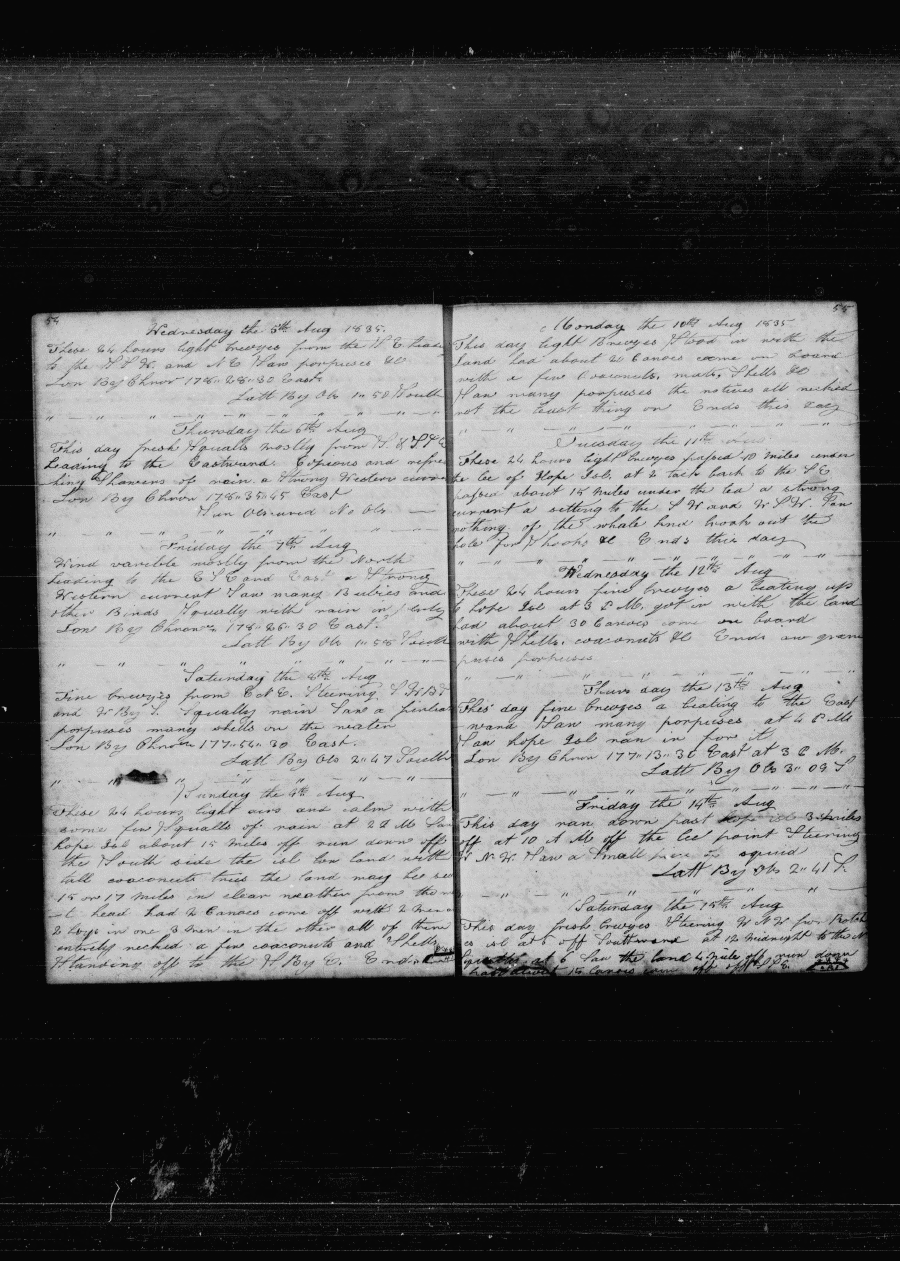 54
Wednesday the 5th Aug 1835.
These 24 hours light brewzes from the
to the and N E Saw porpuses &c
Lon By Chron 178"28"30 East
Latt By Obs 1"50 South
Thursday the 6th Aug
This day fresh Squalls mostly from
Leading to the Eastward. Copious and
Showers of rain, a Strong Western
Lon By Chron 178"35"45 East
Sun Obscured No Obs
Friday the 7th Aug
Wind varible mostly from the North
leading to the and East a Strong
Western current Saw many Bubies and
other Birds Squally with rain in
Lon By Chron 178"26"30 East.
Latt By Obs 1"58 South
Saturday the 8th Aug
Fine brewzes from E N E. Steering
and W By S. Squally rain Saw a
porpuses many shells on the water
Lon By Chron 177"54"30 East.
Latt By Obs 2"47 South
Sunday the 9th Aug
These 24 hours light airs and calm with
some few Squalls of rain at 2 M
hope Isl about 15 miles off run down off
the South side the isl low land with
tall coaconuts tries the land may bee
15 or 17 miles in clear weather from the
head had 2 Canoes come off with 2 men
2 boys in one 3 men in the other all of them
entirely necked a few coaconuts and Shells
Standing off to the S By E. Ends
55
Monday the 10th Aug 1835
This day light Brewzes Stood in with the
land had about 20 Canoes come on board
with a few Coaconuts, mats, Shells &c
Saw many porpuses the natives all necked
not the least thing on Ends this day
Tuesday the 11th
These 24 hours light brewzes passed 10 miles under
the lee of Hope Isl. at 2 tack back to the S E
passed about 15 miles under the lea a strong
current a setting to the S W and W S W. Saw
nothing of the whale and brook out the
hole for Shooks &c Ends this day
Wednesday the 12th Aug
These 24 hours fine brewzes a beating up
to hope Isl at 3 P M. got in with the land
had about 30 Canoes come on board
with Shells. coaconuts &c Ends saw
porpuses
Thursday the 13th Aug
This day fine brewzes a beating to the East
ward Saw many porpuses at 4 P M
Saw hope Isl ran in for it
Lon By Chron 177"13"30 East at 3 P M.
Latt By Obs 3"09 S
Friday the 14th Aug
This day ran down past hope isl 3 miles
off at 10 A M off the lee point Steering
W N W. Saw a Small squid
Latt By Obs 2"41 S.
Saturday the 15th Aug
This day fresh brewzes Stering W N W for
isl at off Southward at 12 Midnight to the
at 6 Saw the land 4 mile off run down
15 Canoes